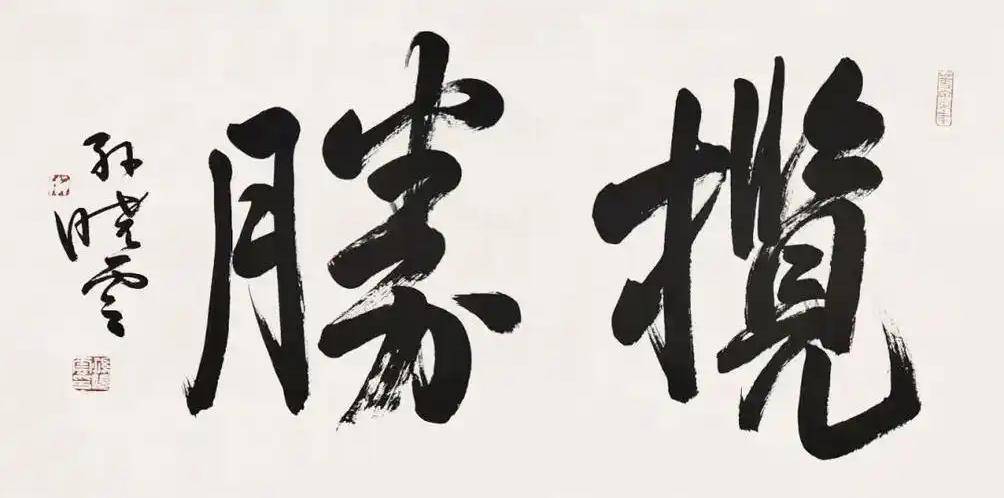 攬勝
孫曉雲